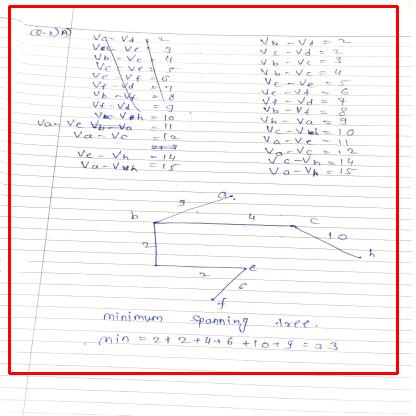 Q-2) A)
Va - Vd = 2
Ve - Ve = 3
Vb - Vc = 4
Vc - Ve = 5
Ve - Vf = 6
Vf - Vd = 7
Vb - Vf = 8
Vf - Vd = 9
Vc - Vh = 10
Va - Ve Vb - Va = 11
Va - Vc = 12
Ve - Vh = 14
Va - Vh = 15
Vb - Vd = 2
Vc - Vd = 2
Vb - Vc = 3
Vb - Vc = 4
Vc - Ve = 5
Ve - Vf = 6
Vf - Vd = 7
Vb - Vf = 8
Vb - Va = 9
Vc - Vh = 10
Va - Ve = 11
Va - Vc = 12
Vc - Vh = 14
Va - Vh = 15
a
9
b
4
c
10
h
2
2
e
6
f
minimum spanning tree.
min = 2 + 2 + 4 + 6 + 10 + 9 = 33